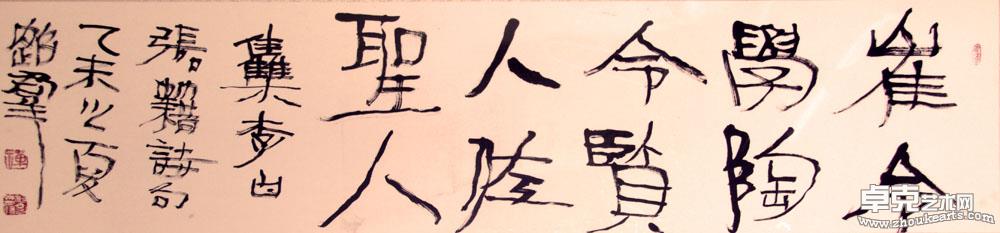 崔令
學陶
令賢
人佐
聖人
集李白
張籍詩句
乙未之夏
羣
卓克艺术网
www.zhoukearts.com